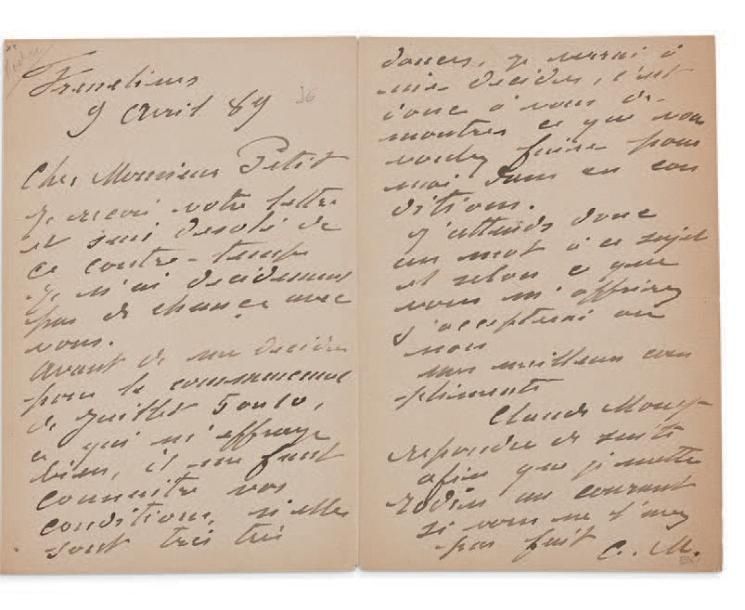 Fresselines
9 Avril 89
36
Cher Monsieur Petit
Je recois votre lettre
et suis desolé de
ce contre-temps
Je n'ai decidement
pas de chance avec
vous.
Avant de me decider
pour le commencement
de Juillet 5 ou 10,
ce qui m'effraye
bien, il me faut
connaitre vos
conditions, si elles
sont très très
douces, je verrai à
me decider, c'est
donc à vous de
montrer ce que vous
voulez faire pour
moi dans ces con
ditions.
J'attends donc
un mot à ce sujet
et selon ce que
vous m'offrirez
j'accepterai ou
non
mes meilleurs com
pliments
Claude Monet
repondre de suite
afin que je mette
Rodin au courant
si vous ne l'avez
pas fait C. M.